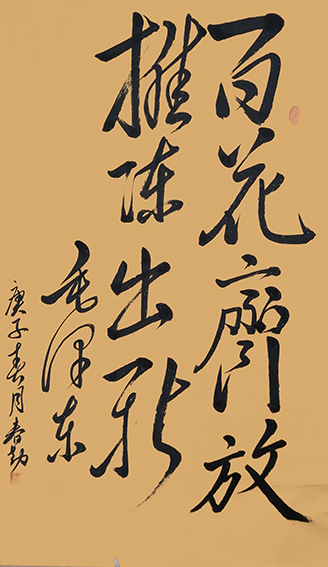 百花齊放
推陈出新
毛泽东
庚子春月春劼